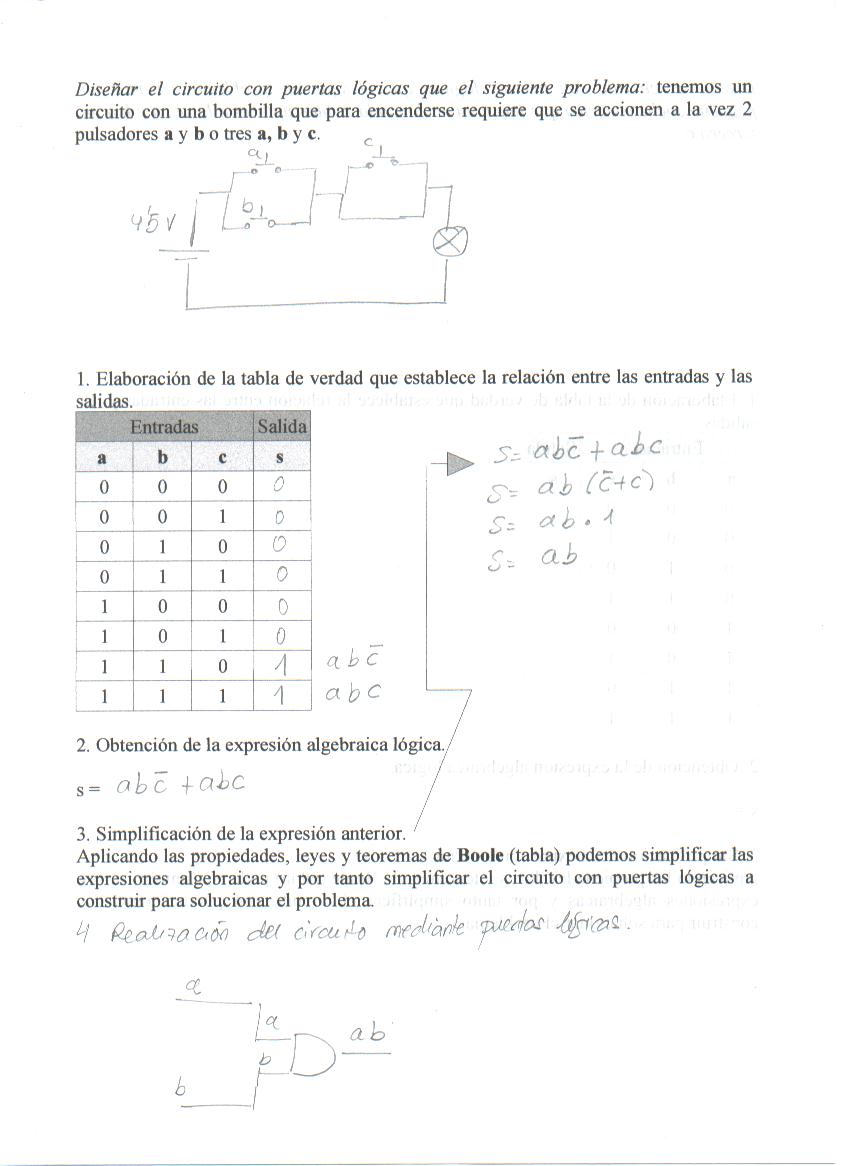 Diseñar el circuito con puertas lógicas que el siguiente problema: tenemos un
circuito con una bombilla que para encenderse requiere que se accionen a la vez 2
pulsadores a y b o tres a, b y c.
a
c
b
4'5 V
1. Elaboración de la tabla de verdad que establece la relación entre las entradas y las
salidas.
Entradas Salida
a b c s
0 0 0 0
0 0 1 0
0 1 0 0
0 1 1 0
1 0 0 0
1 0 1 0
1 1 0 1 abc̅
1 1 1 1 abc
S= abc̅ + abc
S= ab (c̅+c)
S= ab • 1
S= ab
2. Obtención de la expresión algebraica lógica.
s = abc̅ + abc
3. Simplificación de la expresión anterior.
Aplicando las propiedades, leyes y teoremas de Boole (tabla) podemos simplificar las
expresiones algebraicas y por tanto simplificar el circuito con puertas lógicas a
construir para solucionar el problema.
4 Realización del circuito mediante puertas lógicas.
a
a
ab
b
b